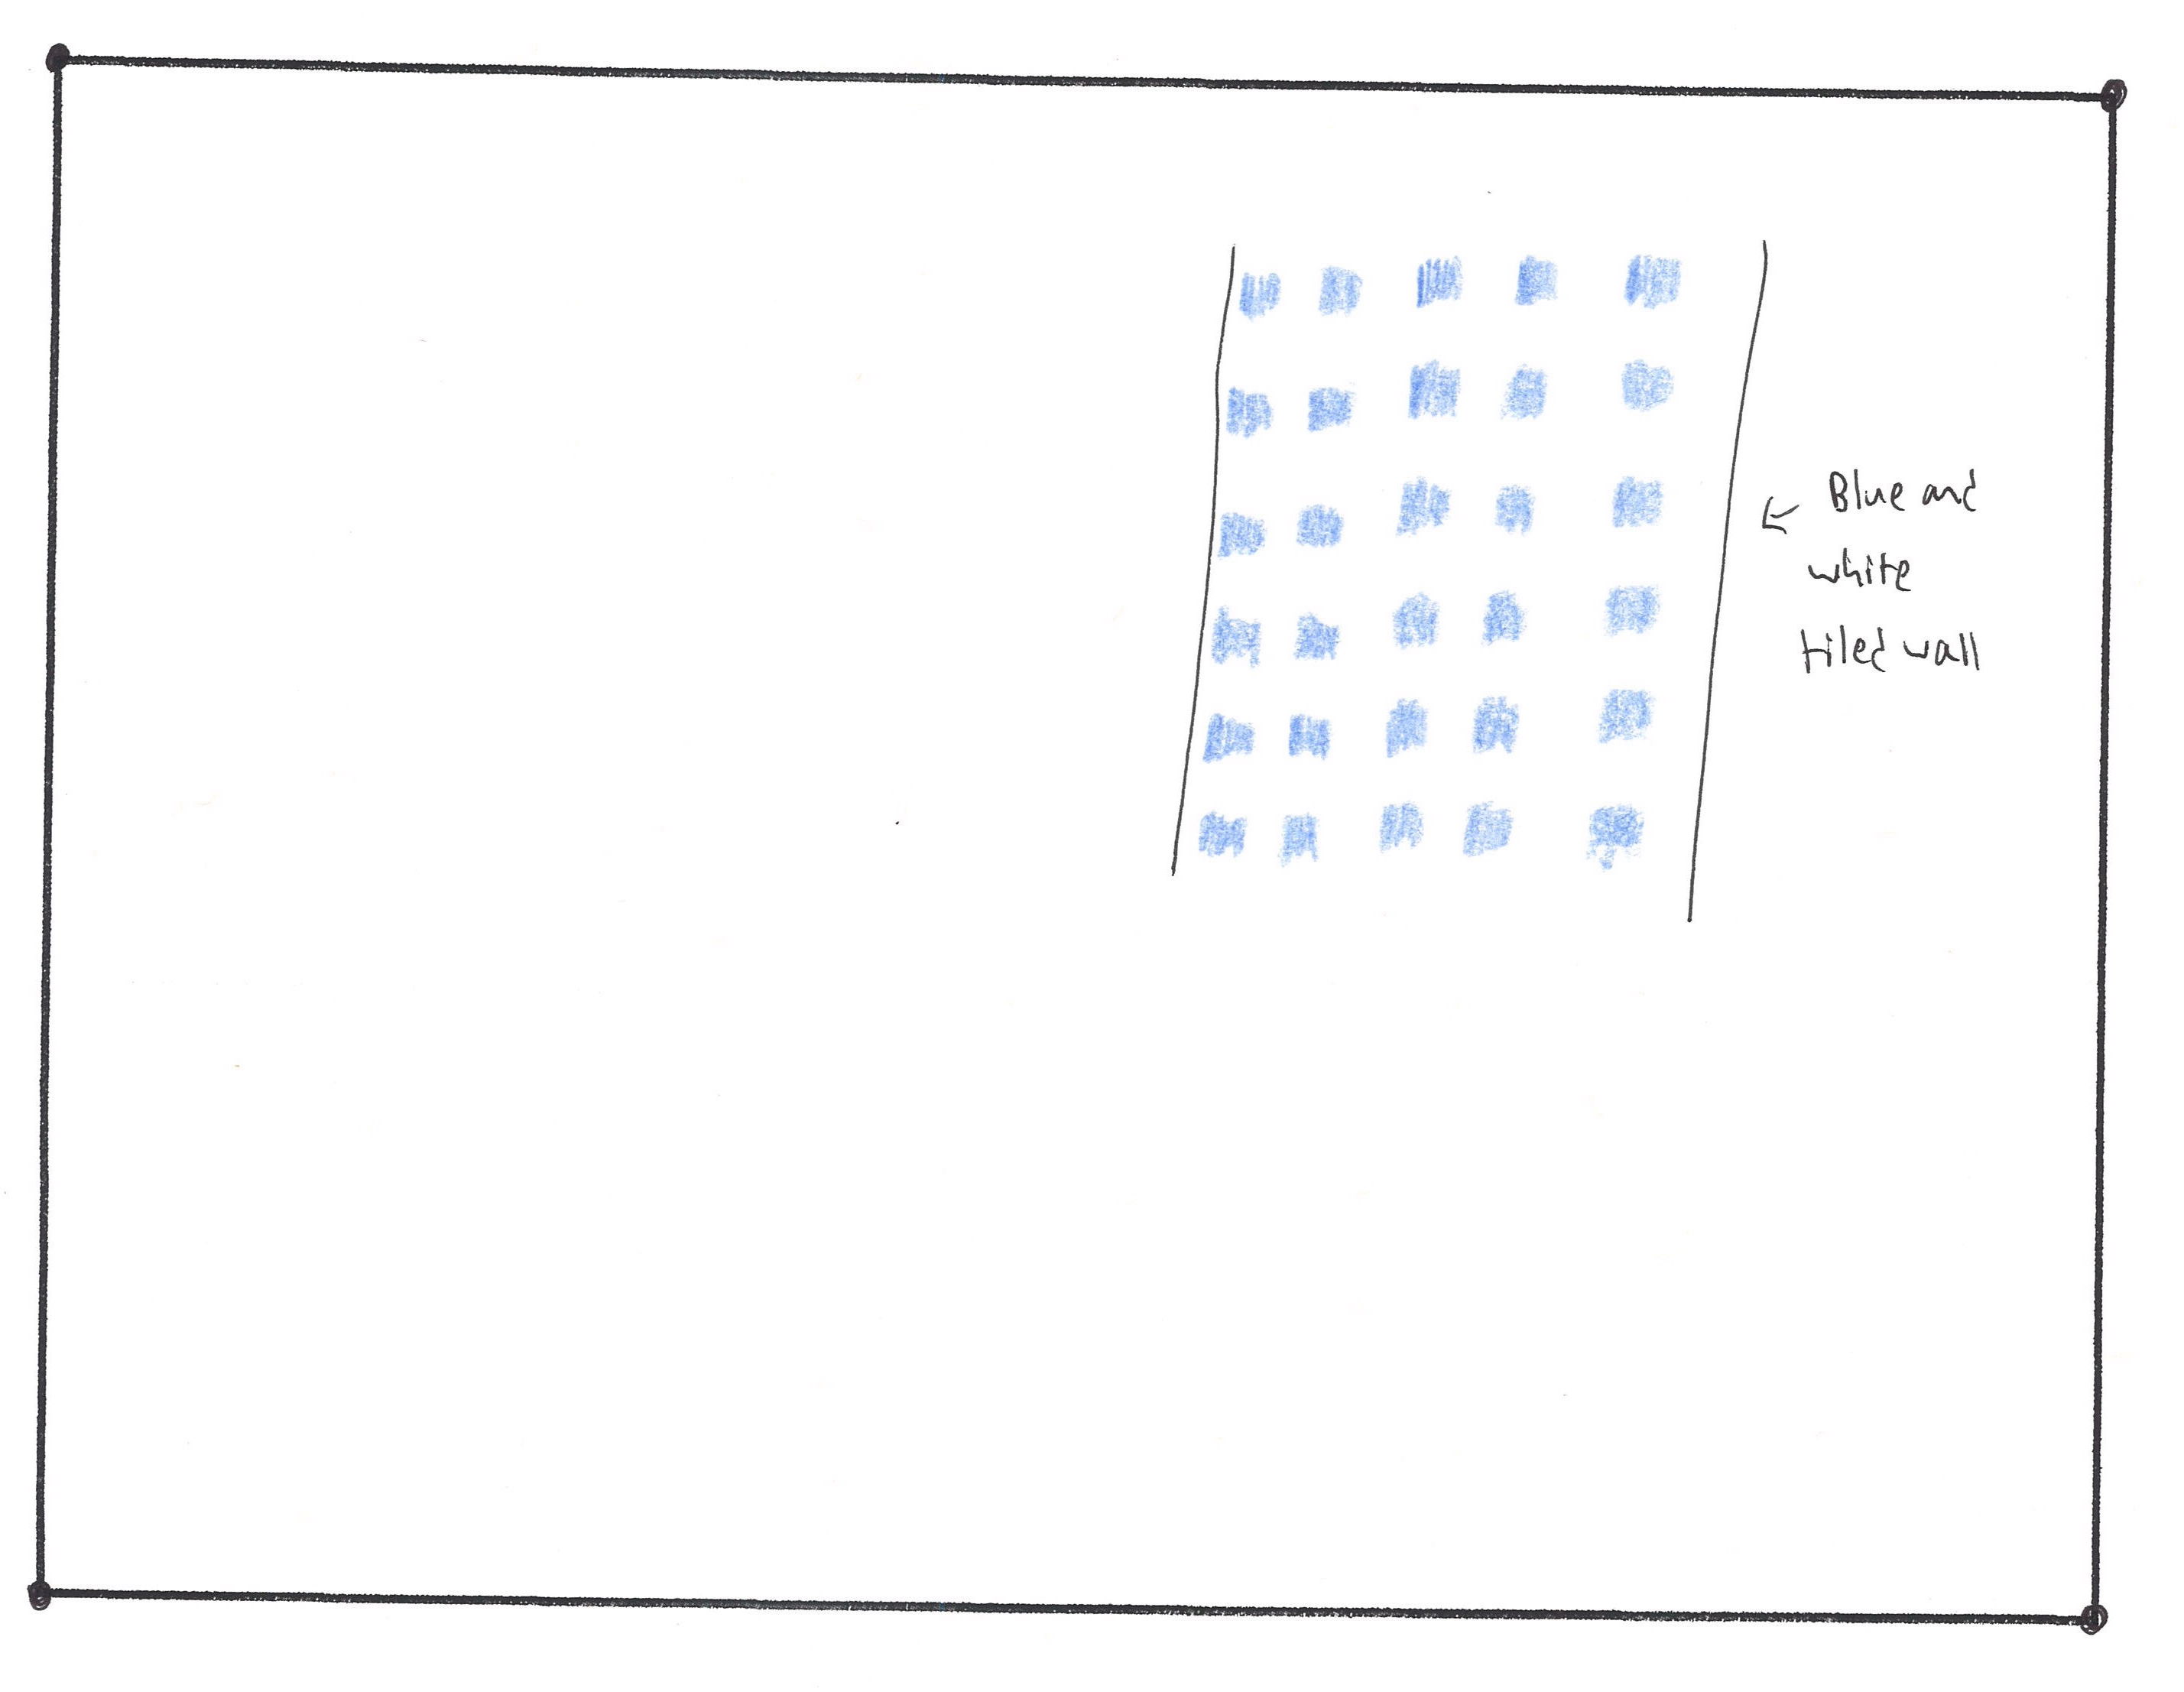 Blue and
white
tiled wall